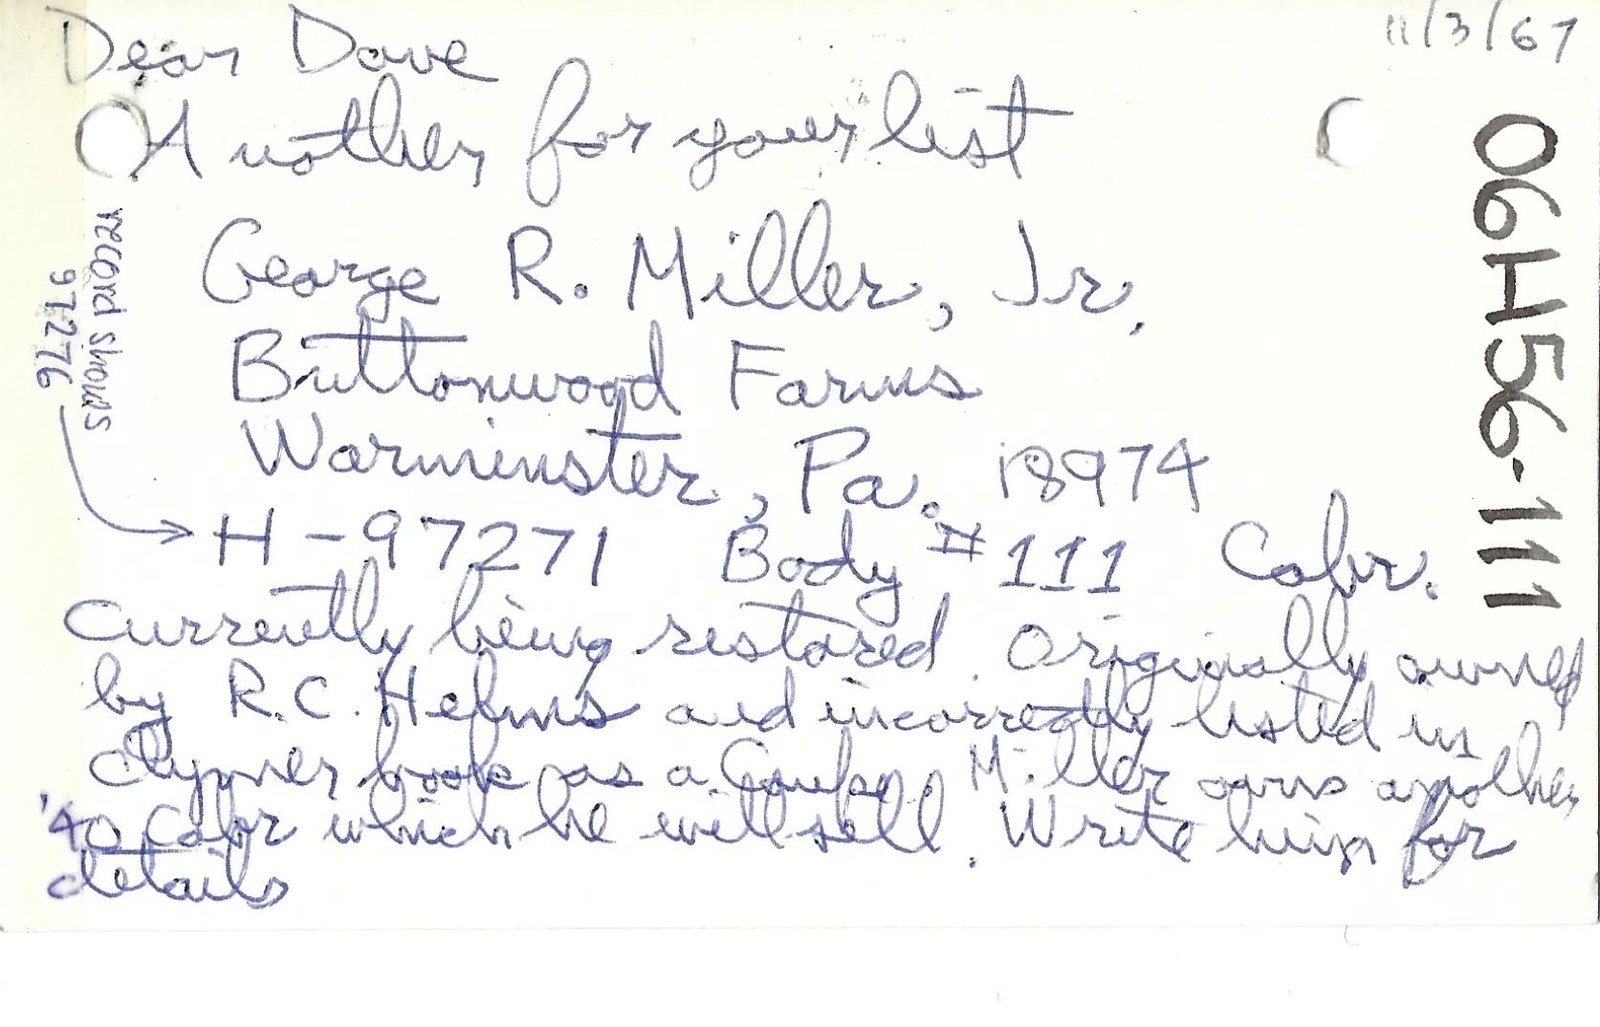 11/3/67
Dear Dave
Another for your list
George R. Miller, Jr.
Buttonwood Farms
Warminster, Pa. 18974
H-97271 Body #111 Cabr.
Currently being restored. Originally owned
by R.C. Helms and incorrectly listed in
Clymer book as a Coupe. Miller owns another
'40 Cabr which he will sell. Write him for
details
record shows
97276
06H56-111